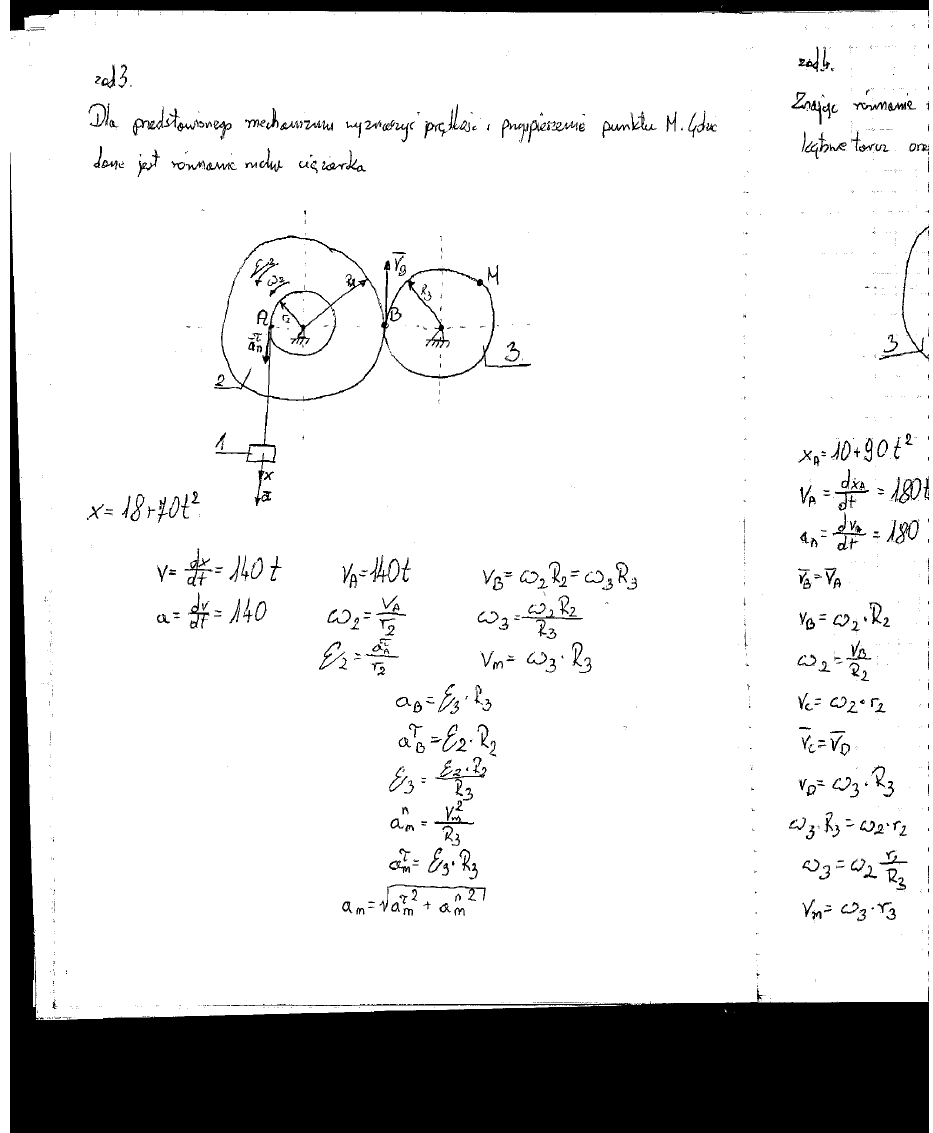 zad 3.
Dla przedstawionego mechanizmu wyznaczyć prędkość i przypieszenie punktu M. Gdzie
dane jest równanie ruchu ciężarka
ε2
ω2
r2
R2
A
a̅ᵀA
V̅B
B
R3
M
2
3
1
x
a̅
x = 18+70t²
v = dx/dt = 140t
a = dv/dt = 140
VA = 140t
ω2 = VA/r2
ε2 = aᵀA/r2
VB = ω2 R2 = ω3 R3
ω3 = ω2 R2/R3
Vm = ω3 · R3
aB = ε3 · R3
aᵀB = ε2 · R2
ε3 = ε2 · R2/R3
aⁿm = Vm²/R3
aᵀm = ε3 · R3
am = √(aᵀm² + aⁿm²)
zad 4.
Znając równanie
kątowe tarcz
3
xA = 10+90t²
VA = dxA/dt = 180t
aA = dVA/dt = 180
V̅B = V̅A
VB = ω2 · R2
ω2 = VB/R2
Vc = ω2 · r2
V̅c = V̅D
VD = ω3 · R3
ω3 · R3 = ω2 · r2
ω3 = ω2 r2/R3
Vm = ω3 · r3